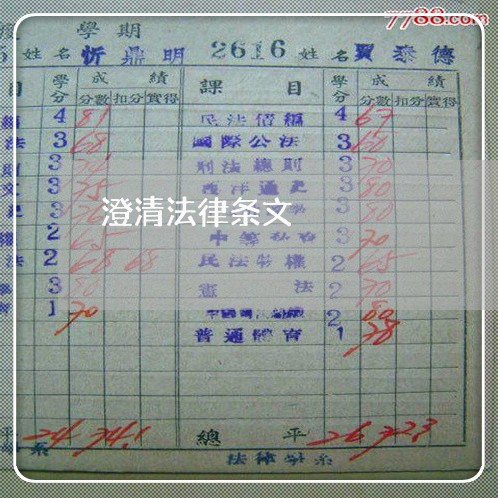 7788.com
學期
5 姓名 忻鼎明 2616 姓名 賈泰德
目 學分 成績 課目 學分 成績
分數 扣分 實得 分數 扣分 實得
4 81 民法債編 4 67
法 3 68 國際公法 3 60
則 3 刑法總則 3 70
文 3 75 西洋通史 3 80
史 3 3 80
澄清法律条文
權 2 65 3 70
法 2 68 68 民法物權 2 65
3 80 憲法 2 70
育 1 70 2 80
普通體育 1 78
平 24 74.1 總平 26 72.3
系 法律學系